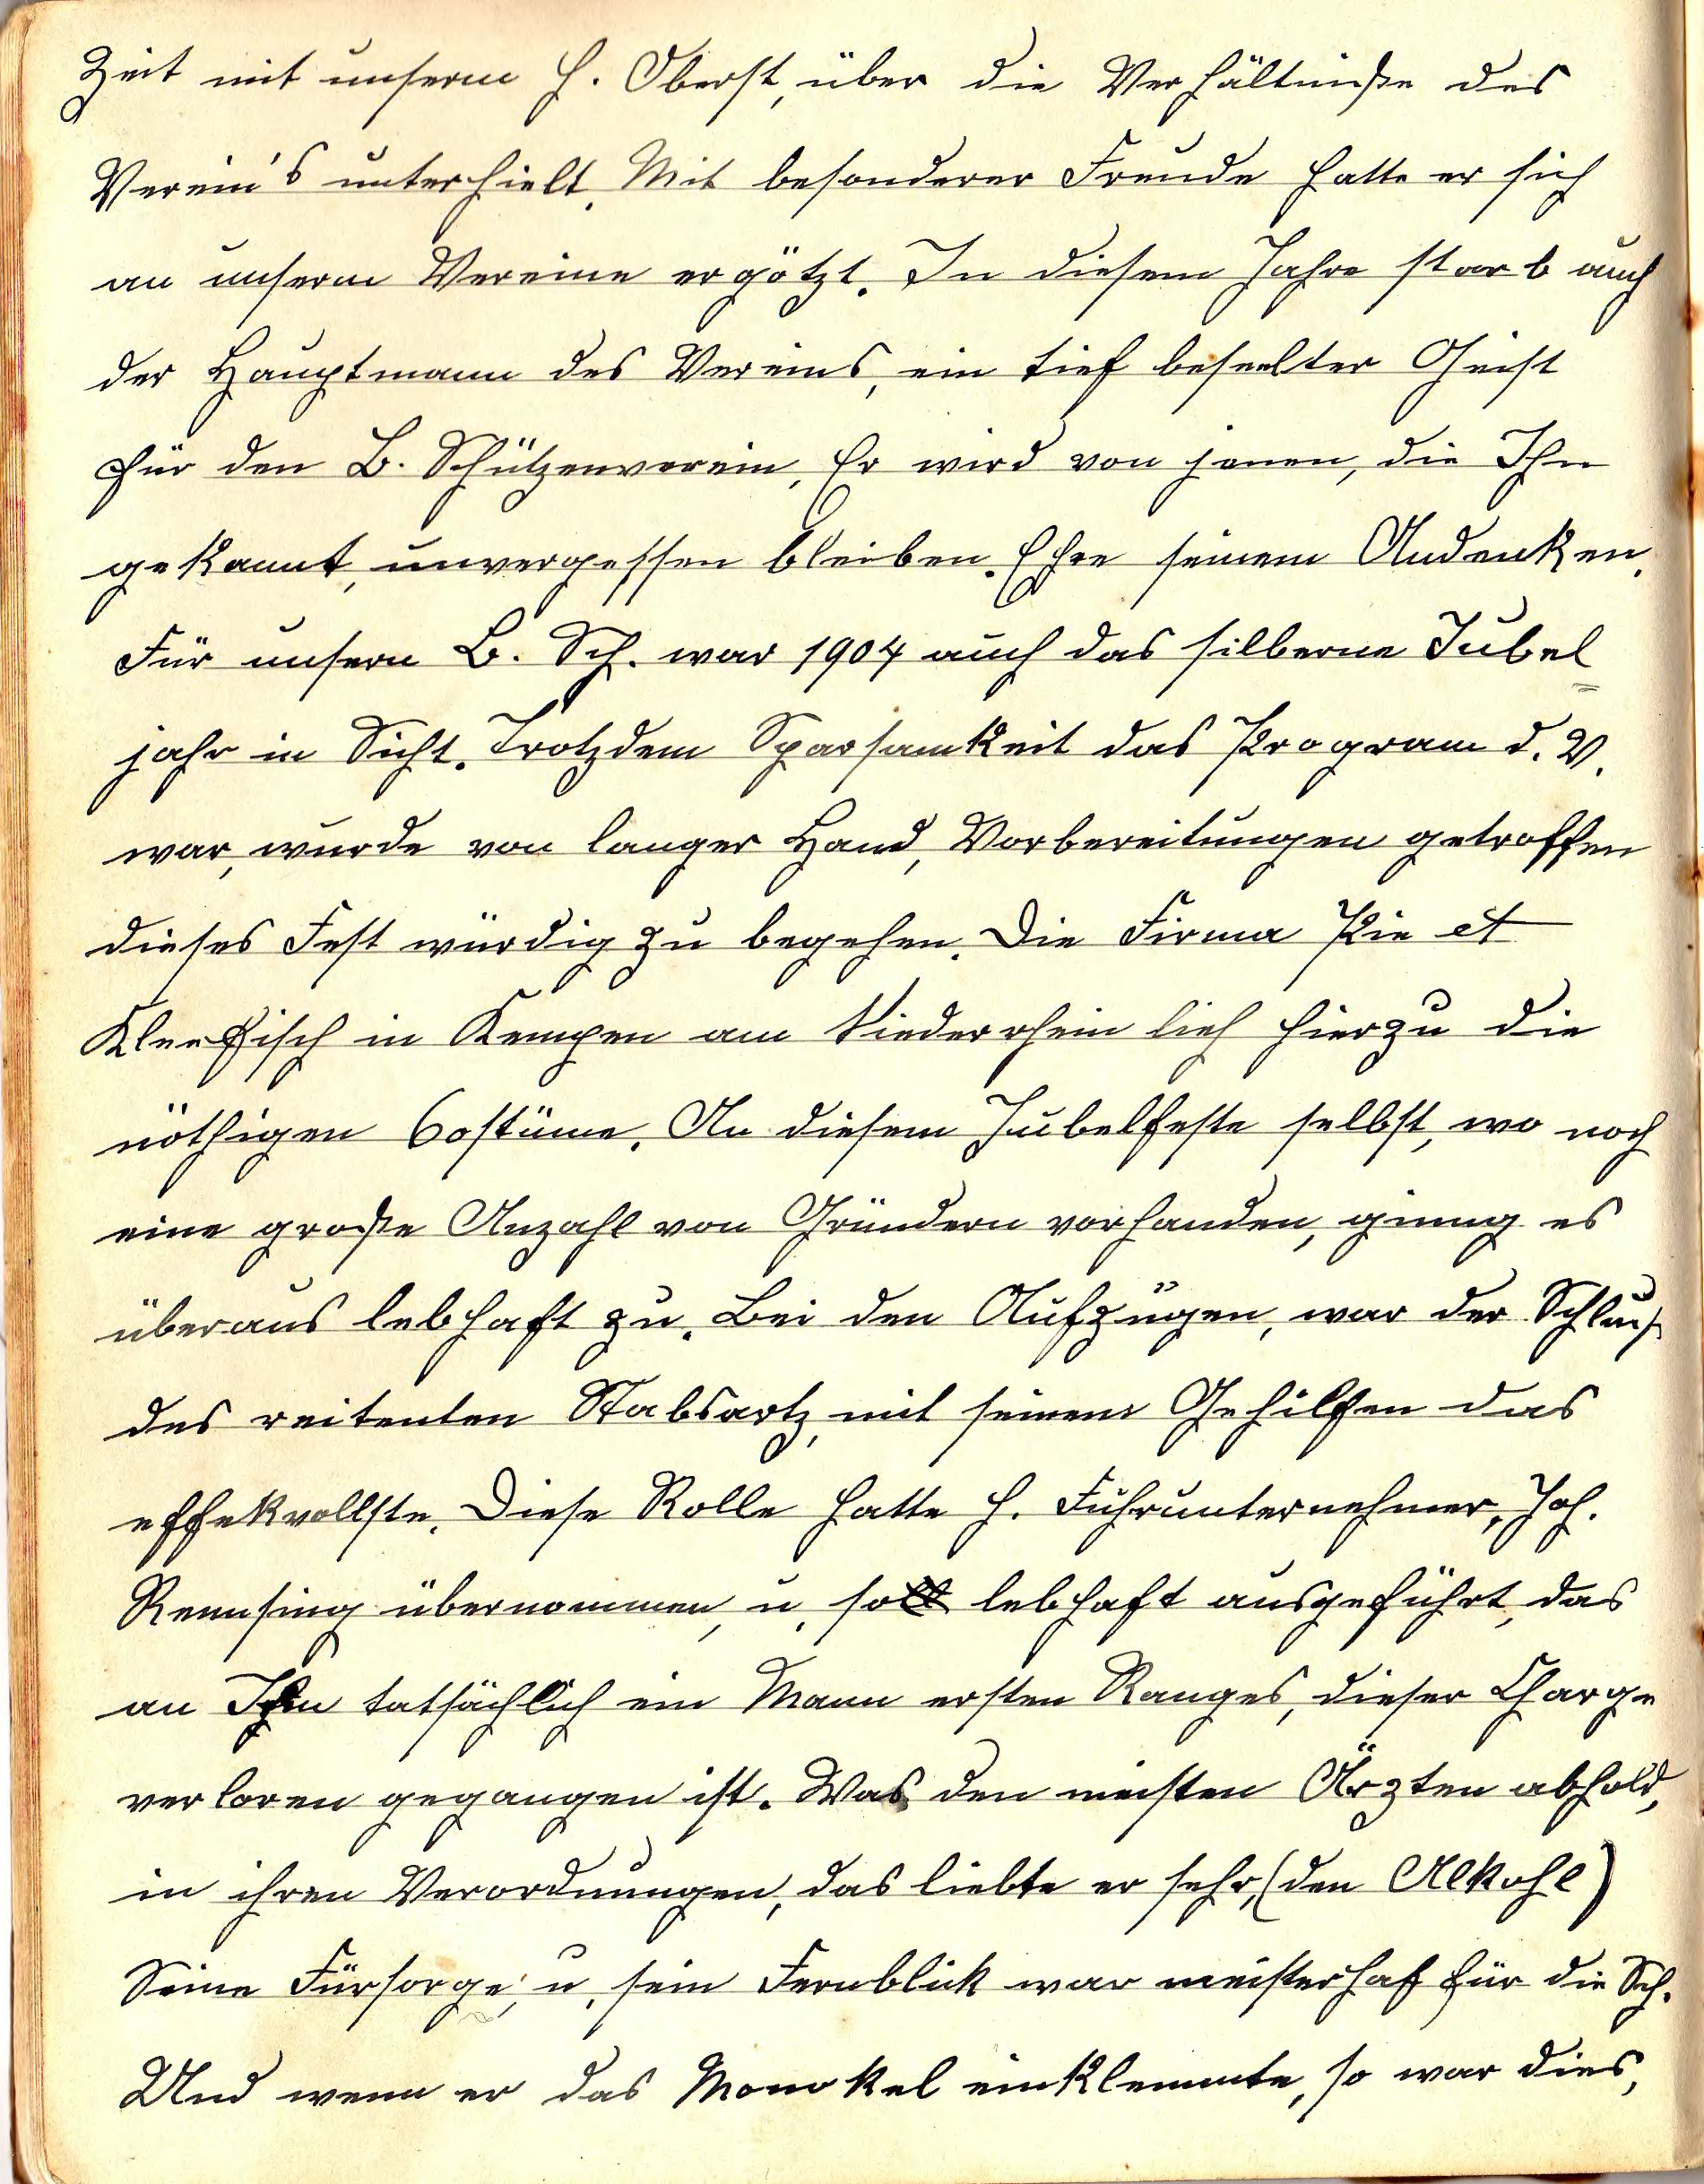 Zeit mit unserm H. Oberst, über die Verhältniße des
Verein's unterhielt. Mit besonderer Freude hatte er sich
an unserm Vereine ergötzt. In diesem Jahre starb auch
der Hauptmann des Vereins, ein tief beseelter Geist
für den B. Schützenverein. Er wird von jenen, die Ihn
gekannt, unvergessen bleiben. Ehre seinem Andenken.
Für unsern B. Sch. war 1904 auch das silberne Jubel
jahr in Sicht. Trotzdem Sparsamkeit das Program d. V.
war, wurde von langer Hand, Vorbereitungen getroffen
dieses Fest würdig zu begehen. Die Firma Pie et
Kleefisch in Kempen am Niederrhein lieh hierzu die
nöthigen Costüme. An diesem Jubelfeste selbst, wo noch
eine große Anzahl von Gründern vorhanden, ginng es
überaus lebhaft zu. Bei den Aufzügen, war der Schluß
des reitenten Stabsartz, mit seinem Gehilfen das
effekvollste. Diese Rolle hatte H. Fuhrunternehmer, Joh.
Rensing übernommen, u. so lebhaft ausgeführt, das
an Ihm tatsächlich ein Mann ersten Ranges, dieser Charge
verloren gegangen ist. Was den meisten Ärzten abhold,
in ihren Verordnungen, das liebte er sehr, (den Alkohl)
Seine Fürsorge, u. sein Fernblick war meisterhaf für die Sch.
Und wenn er das Monokel einklemmte, so war dies,